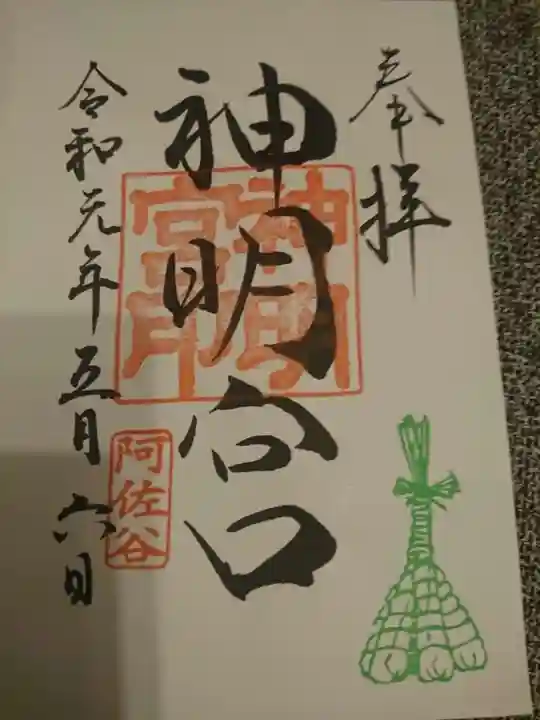 奉拝
神明宮
神明宮印
令和元年五月六日
阿佐谷